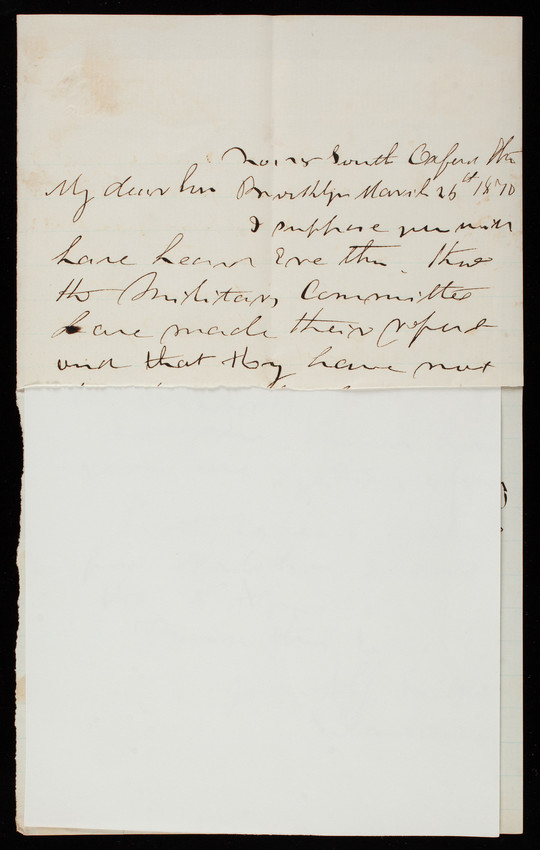 South Oxford
My dear Sir Brooklyn March 26th 1870
I suppose you will
have heard Ere this. that
the Military Committee
have made their report
and that they have not